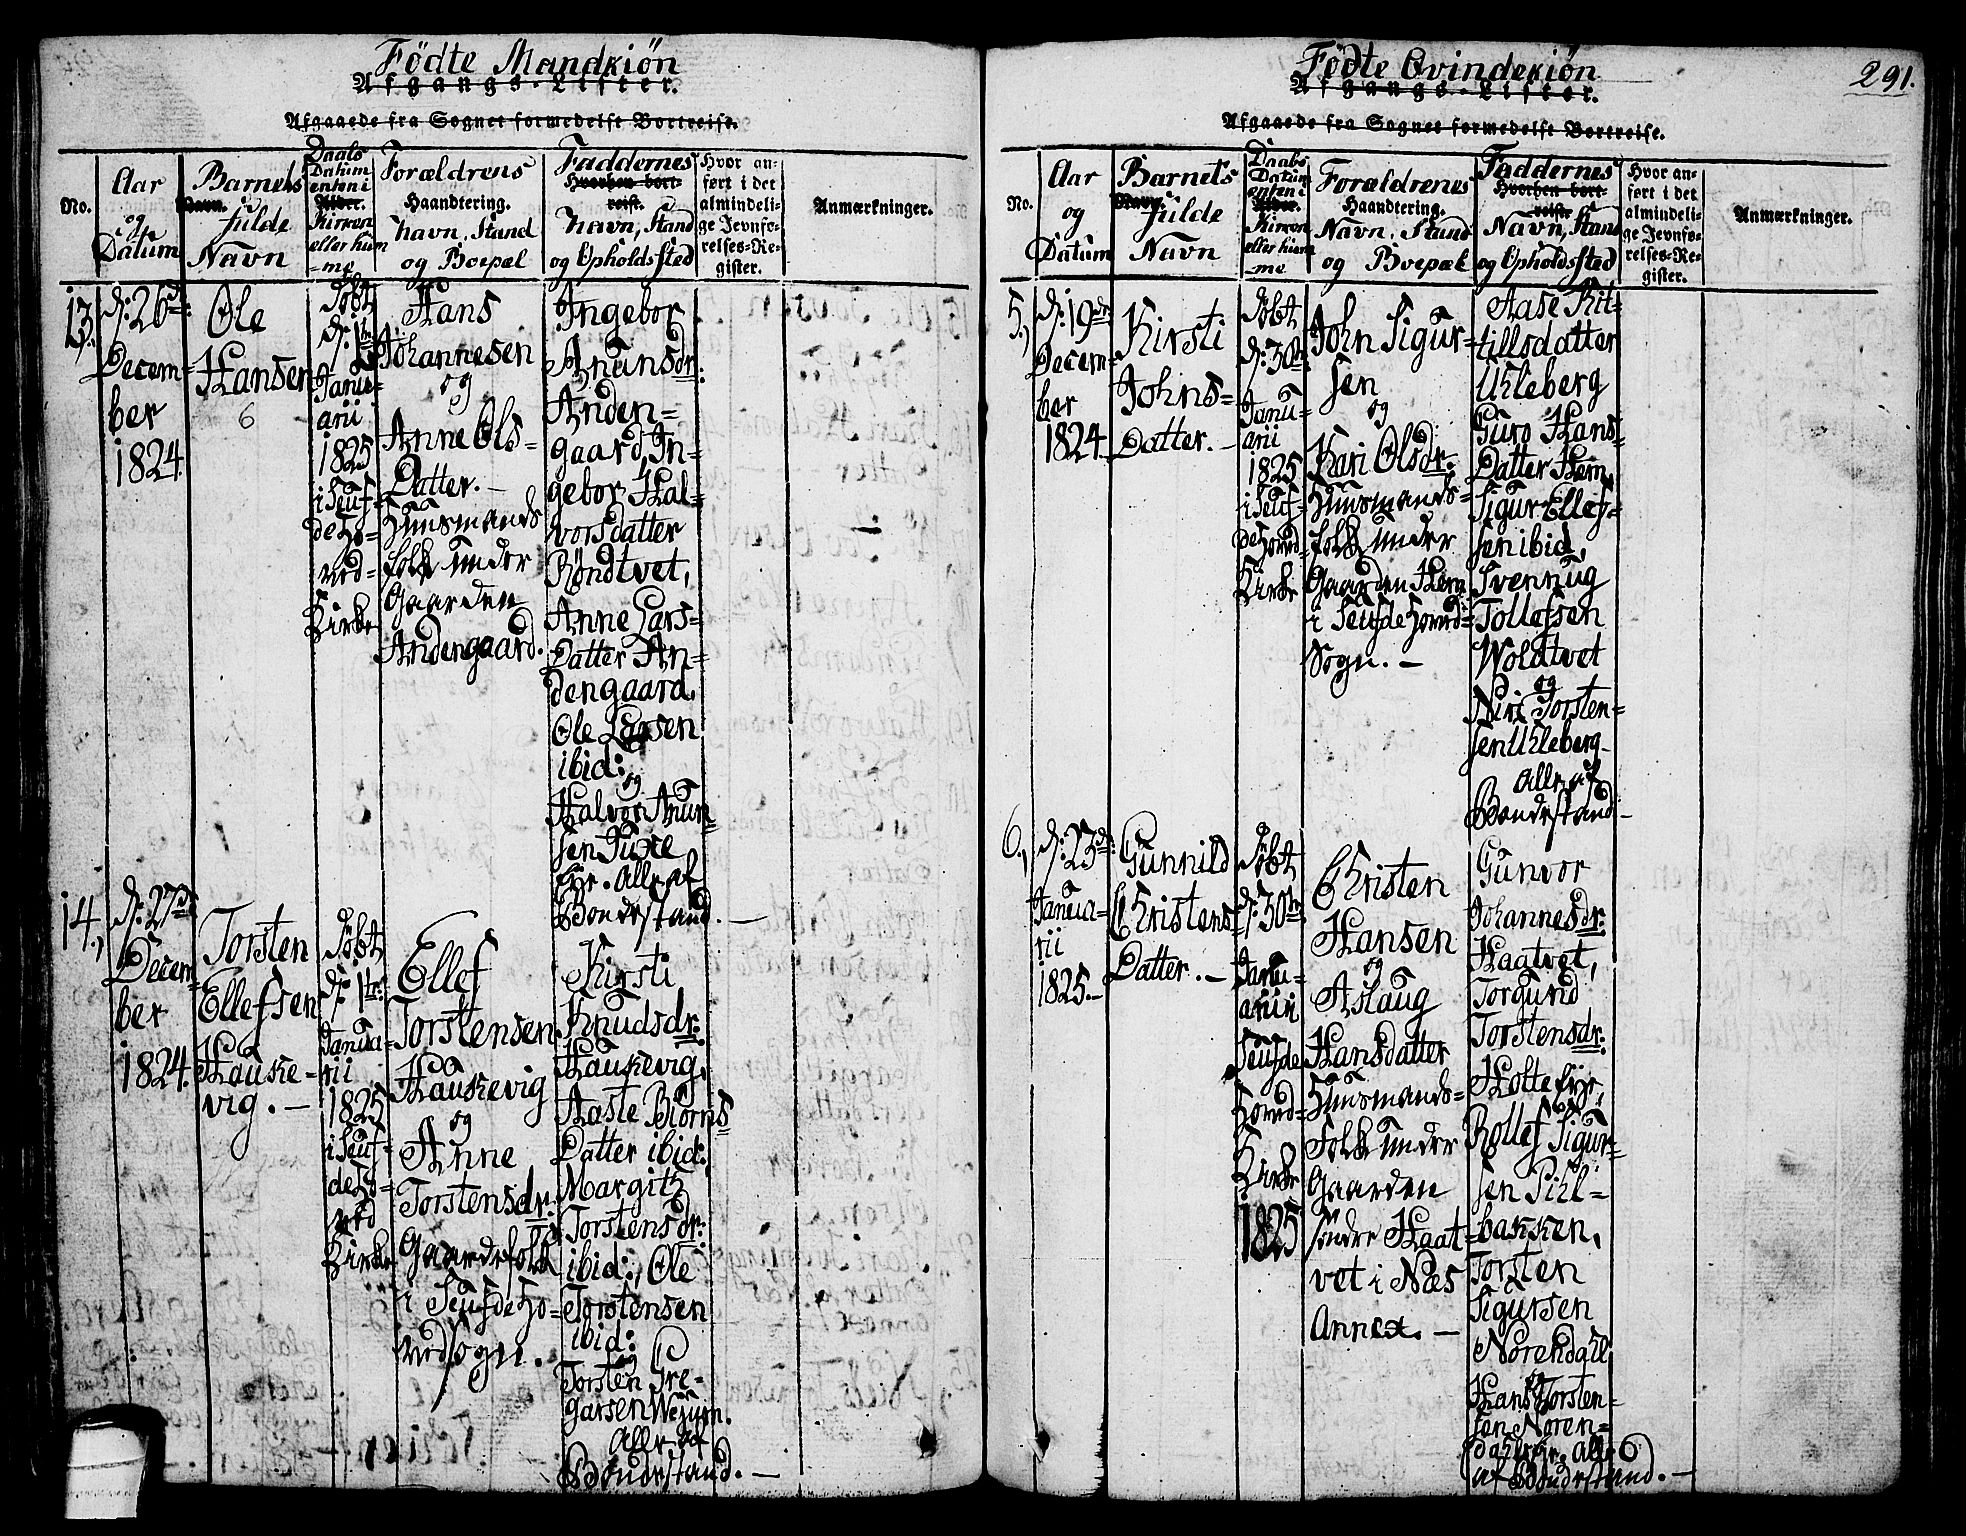 Födte Mandkiön
Afgangs-Lister.
Afgaaede fra Sognet formedelst Bortreise.
No.
Aar
og
Datum
Barnets
Navn.
fulde
Navn
Daabs
Datum
enten i
Alder.
Kirken
eller hiem
=me
Forældrens
Haandtering.
Navn, Stand
og Boepæl
Faddernes
Hvorhen bort-
reist.
Navn, Stand
og Opholdssted
Hvor an-
ført i det
almindeli-
ge Jevnfø-
relses-Re-
gister.
Anmærkninger.
13.
d: 26de
Decem=
ber
1824.
Ole
Hansen
6
Döbt
d: 1te
Janu=
arii
1825
i Seuf=
de Ho=
ved=
Kirke
Hans
Johannesen
og
Anne Ols=
Datter.–
Huusmands
folk under
Gaarden
Andengaard.
Ingebor
Anunsdr:
Anden=
gaard, In=
gebor Hal=
vorsdatter
Röndtvet,
Anne Lars=
Datter An=
dengaard,
Ole Larsen
ibid:
og
Halvor Anun=
sen
Alle af
Bondestand.–
14.,
d: 27de
Decem=
ber
1824.
Torsten
Ellefsen
Hauke=
vig.–
Döbt
d: 1te
Janua=
rii
1825
i Seuf=
de Ho=
ved
Kirke
Ellef
Torstensen
Haukevig
og
Anne
Torstensdr:
Gaardefolk
i Seufde Ho=
vedsogn.
Kirsti
Knudsdr:
Haukevig,
Aaste Biörns=
Datter ibid:
Margith
Torstensdr:
ibid:, Ole
Torstensen
ibid:
og
Torsten Gre=
garsen
Alle af
Bondestand.–
Födte Qvindekiön
291.
Afgangs-Lister.
Afgaaede fra Sognet formedelst Bortreise.
No.
Aar
og
Datum
Barnets
Navn.
fulde
Navn
Daabs
Datum
enten i
Alder.
Kirken
eller hiem
=me
Forældrenes
Haandtering.
Navn, Stand
og Boepæl
Faddernes
Hvorhen bort-
reist.
Navn, Stand
og Opholdssted
Hvor an-
ført i det
almindeli-
ge Jevnfø-
relses-Re-
gister.
Anmærkninger.
5.,
d: 19de
Decem=
ber
1824.
Kirsti
Johns=
Datter.–
Döbt
d: 30te
Janu=
arii
1825
i Seuf=
de Hoved=
Kirke
John Sigur=
sen
og
Kari Olsdr:
Huusmands=
folk under
Gaarden Hem
i Seufde Hoved=
Sogn.–
Aase Kit=
tillsdatter
Ukleberg
Guro Hans=
Datter Hem,
Sigur Ellef=
sen ibid,
Svennug
Tollefsen
Woldtvet
og
Niri Torsten=
sen Ukleberg
Alle af
Bondestand–
6.,
d: 23de
Janua=
rii
1825.–
Gunnild
Christens=
Datter.–
Döbt
d: 30te
Janu=
arii i
Seufde
Hoved=
Kirke
1825
Christen
Hansen
og
Aslaug
Hansdatter
Huusmands=
folk under
Gaarden
söndre Haat=
vet i Næs
Annex.–
Gunvor
Johannesdr:
Haatvet,
Torgund
Torstensdr:
Rollef Sigur=
sen Pihl=
bakken,
Torsten
Sigursen
Norendahl
og
Hans Torsten=
sen Noren=
dahl Alle
af Bondestand.–